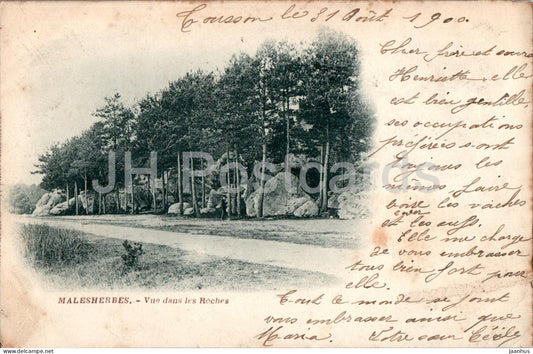 Tousson le 31 Août 1900.
Cher frère et sœur
Henriette, elle
est bien gentille,
ses occupations
préférées sont
toujours les
mêmes faire
boire les vaches
et les
Elle me charge
de vous embrasser
tous bien fort pour
elle.
Tout le monde se joint
vous embrasser ainsi que
Maria. Votre sœur Cécile
JHPostcards
MALESHERBES. - Vue dans les Roches
© delcampe.net
jaanhus